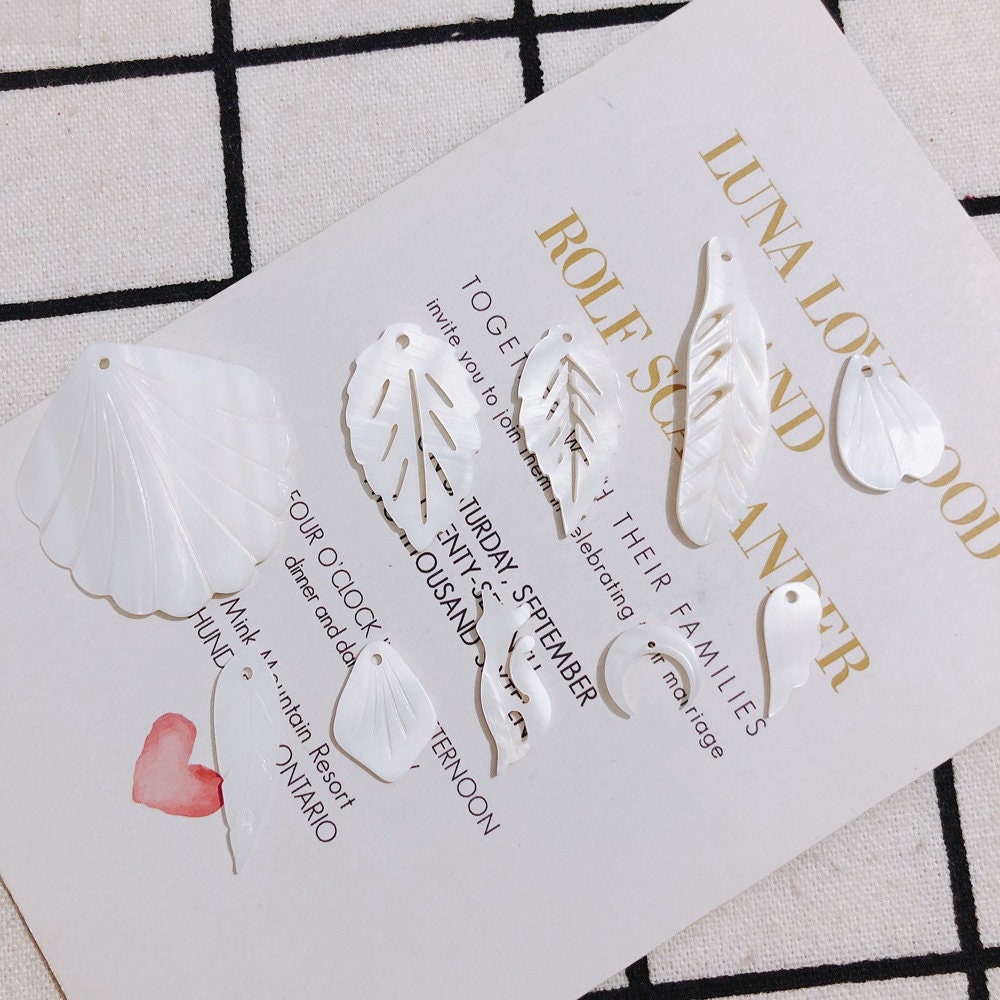 LUNA LOV OOD
AND
ROLF SCA ANDER
TOGET H THEIR FAMILIES
invite you to join them in celebrating our marriage
ATURDAY, SEPTEMBER
ENTY-SE TH
HOUSAND SIXTEEN
FOUR O'CLOCK TERNOON
dinner and da
Mink Mountain Resort
HUND ONTARIO